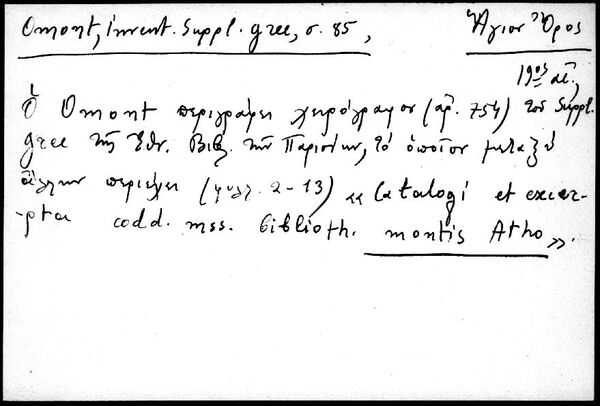 Omont, invent. Suppl. grec, σ. 85, Ἅγιον Ὄρος
19ος αἰ.,
Ὁ Omont περιγράφει χειρόγραφον (ἀρ. 754) τοῦ Suppl.
grec τῆς Ἐθν. Βιβλ. τῶν Παρισίων, τὸ ὁποῖον μεταξὺ
ἄλλων περιέχει (φυλλ. 2-13) «Catalogi et excer-
-pta codd. mss. biblioth. montis Atho».